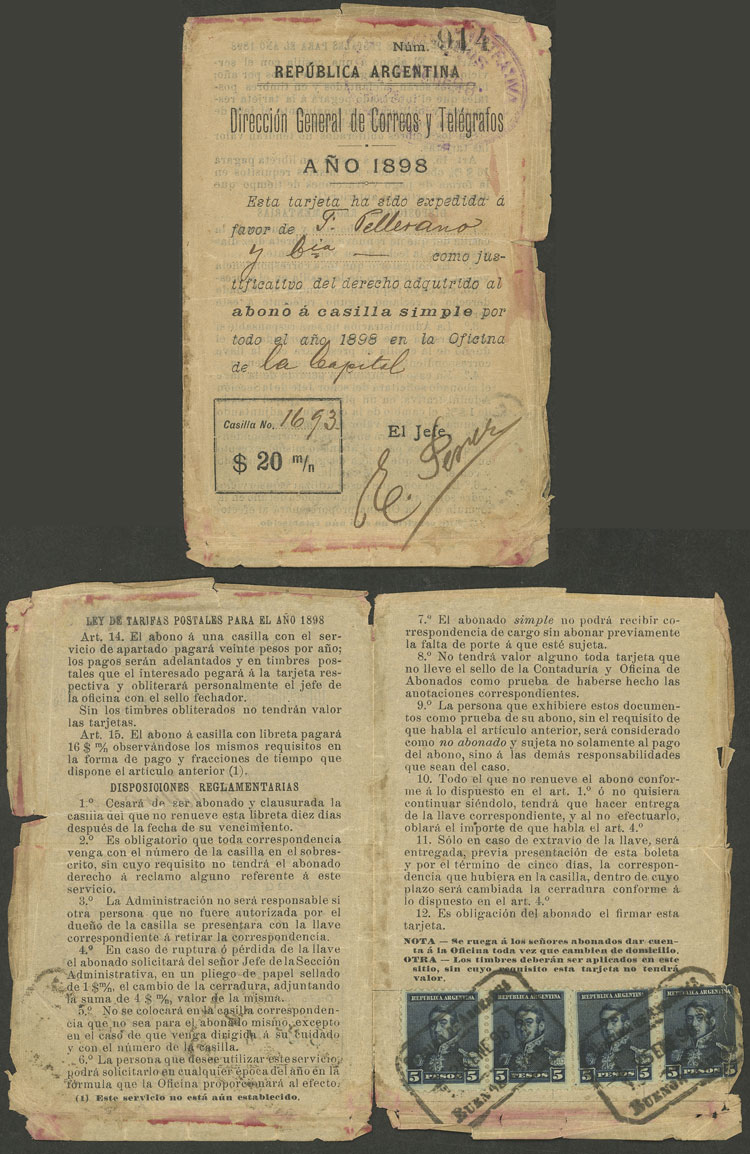 Núm. 914
REPÚBLICA ARGENTINA
Dirección General de Correos y Telégrafos
AÑO 1898
Esta tarjeta ha sido expedida á
favor de F. Pellerano
y Cia como jus-
tificativo del derecho adquirido al
abono á casilla simple por
todo el año 1898 en la Oficina
de la Capital
Casilla No. 1693
$ 20 m/n
El Jefe
LEY DE TARIFAS POSTALES PARA EL AÑO 1898
Art. 14. El abono á una casilla con el ser-
vicio de apartado pagará veinte pesos por año;
los pagos serán adelantados y en timbres pos-
tales que el interesado pegará á la tarjeta res-
pectiva y obliterará personalmente el jefe de
la oficina con el sello fechador.
Sin los timbres obliterados no tendrán valor
las tarjetas.
Art. 15. El abono á casilla con libreta pagará
16 $ m/n observándose los mismos requisitos en
la forma de pago y fracciones de tiempo que
dispone el artículo anterior (1).
DISPOSICIONES REGLAMENTARIAS
1.º Cesará de ser abonado y clausurada la
casilla del que no renueve esta libreta diez días
después de la fecha de su vencimiento.
2.º Es obligatorio que toda correspondencia
venga con el número de la casilla en el sobres-
crito, sin cuyo requisito no tendrá el abonado
derecho á reclamo alguno referente á este
servicio.
3.º La Administración no será responsable si
otra persona que no fuere autorizada por el
dueño de la casilla se presentara con la llave
correspondiente á retirar la correspondencia.
4.º En caso de ruptura ó pérdida de la llave
el abonado solicitará del señor Jefe de la Sección
Administrativa, en un pliego de papel sellado
de 1 $ m/n, el cambio de la cerradura, adjuntando
la suma de 4 $ m/n, valor de la misma.
5.º No se colocará en la casilla corresponden-
cia que no sea para el abonado mismo, excepto
en el caso de que venga dirigida á su cuidado
y con el número de la casilla.
6.º La persona que desee utilizar este servicio,
podrá solicitarlo en cualquier época del año en la
fórmula que la Oficina proporcionará al efecto.
(1) Este servicio no está aún establecido.
7.º El abonado simple no podrá recibir co-
rrespondencia de cargo sin abonar previamente
la falta de porte á que esté sujeta.
8.º No tendrá valor alguno toda tarjeta que
no lleve el sello de la Contaduría y Oficina de
Abonados como prueba de haberse hecho las
anotaciones correspondientes.
9.º La persona que exhibiere estos documen-
tos como prueba de su abono, sin el requisito de
que habla el artículo anterior, será considerado
como no abonado y sujeta no solamente al pago
del abono, sinó á las demás responsabilidades
que sean del caso.
10. Todo el que no renueve el abono confor-
me á lo dispuesto en el art. 1.º ó no quisiera
continuar siéndolo, tendrá que hacer entrega
de la llave correspondiente, y al no efectuarlo,
oblará el importe de que habla el art. 4.º
11. Sólo en caso de extravio de la llave, será
entregada, prévia presentación de esta boleta
y por el término de cinco días, la correspon-
dencia que hubiera en la casilla, dentro de cuyo
plazo será cambiada la cerradura conforme á
lo dispuesto en el art. 4.º
12. Es obligación del abonado el firmar esta
tarjeta.
NOTA — Se ruega á los señores abonados dar cuen-
ta á la Oficina toda vez que cambien de domicilio.
OTRA — Los timbres deberán ser aplicados en este
sitio, sin cuyo requisito esta tarjeta no tendrá
valor.
REPUBLICA ARGENTINA REPUBLICA ARGENTINA REPUBLICA ARGENTINA REPUBLICA ARGENTINA
5 PESOS 5 5 PESOS 5 5 PESOS 5 5 PESOS 5
BUENOS
BUENOS